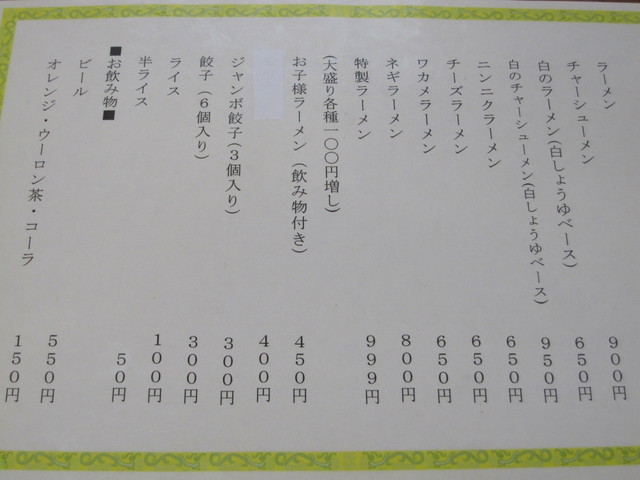 ラーメン
チャーシューメン 900円
白のラーメン(白しょうゆベース) 650円
白のチャーシューメン(白しょうゆベース) 950円
ニンニクラーメン 650円
チーズラーメン 650円
ワカメラーメン 650円
ネギラーメン 800円
特製ラーメン 999円
(大盛り各種一〇〇円増し)
お子様ラーメン(飲み物付き) 450円
400円
ジャンボ餃子(3個入り) 300円
餃子(6個入り) 300円
ライス 100円
半ライス 50円
■お飲み物■
ビール 550円
オレンジ・ウーロン茶・コーラ 150円